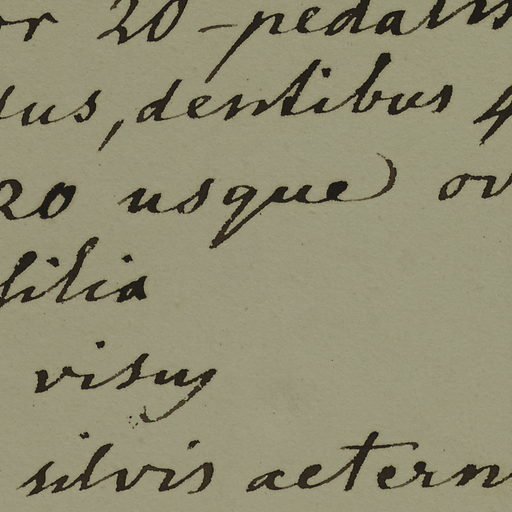 or 20-pedalis
sus, dentibus 4
20 usque) ov
silia
visus
silvis aetern